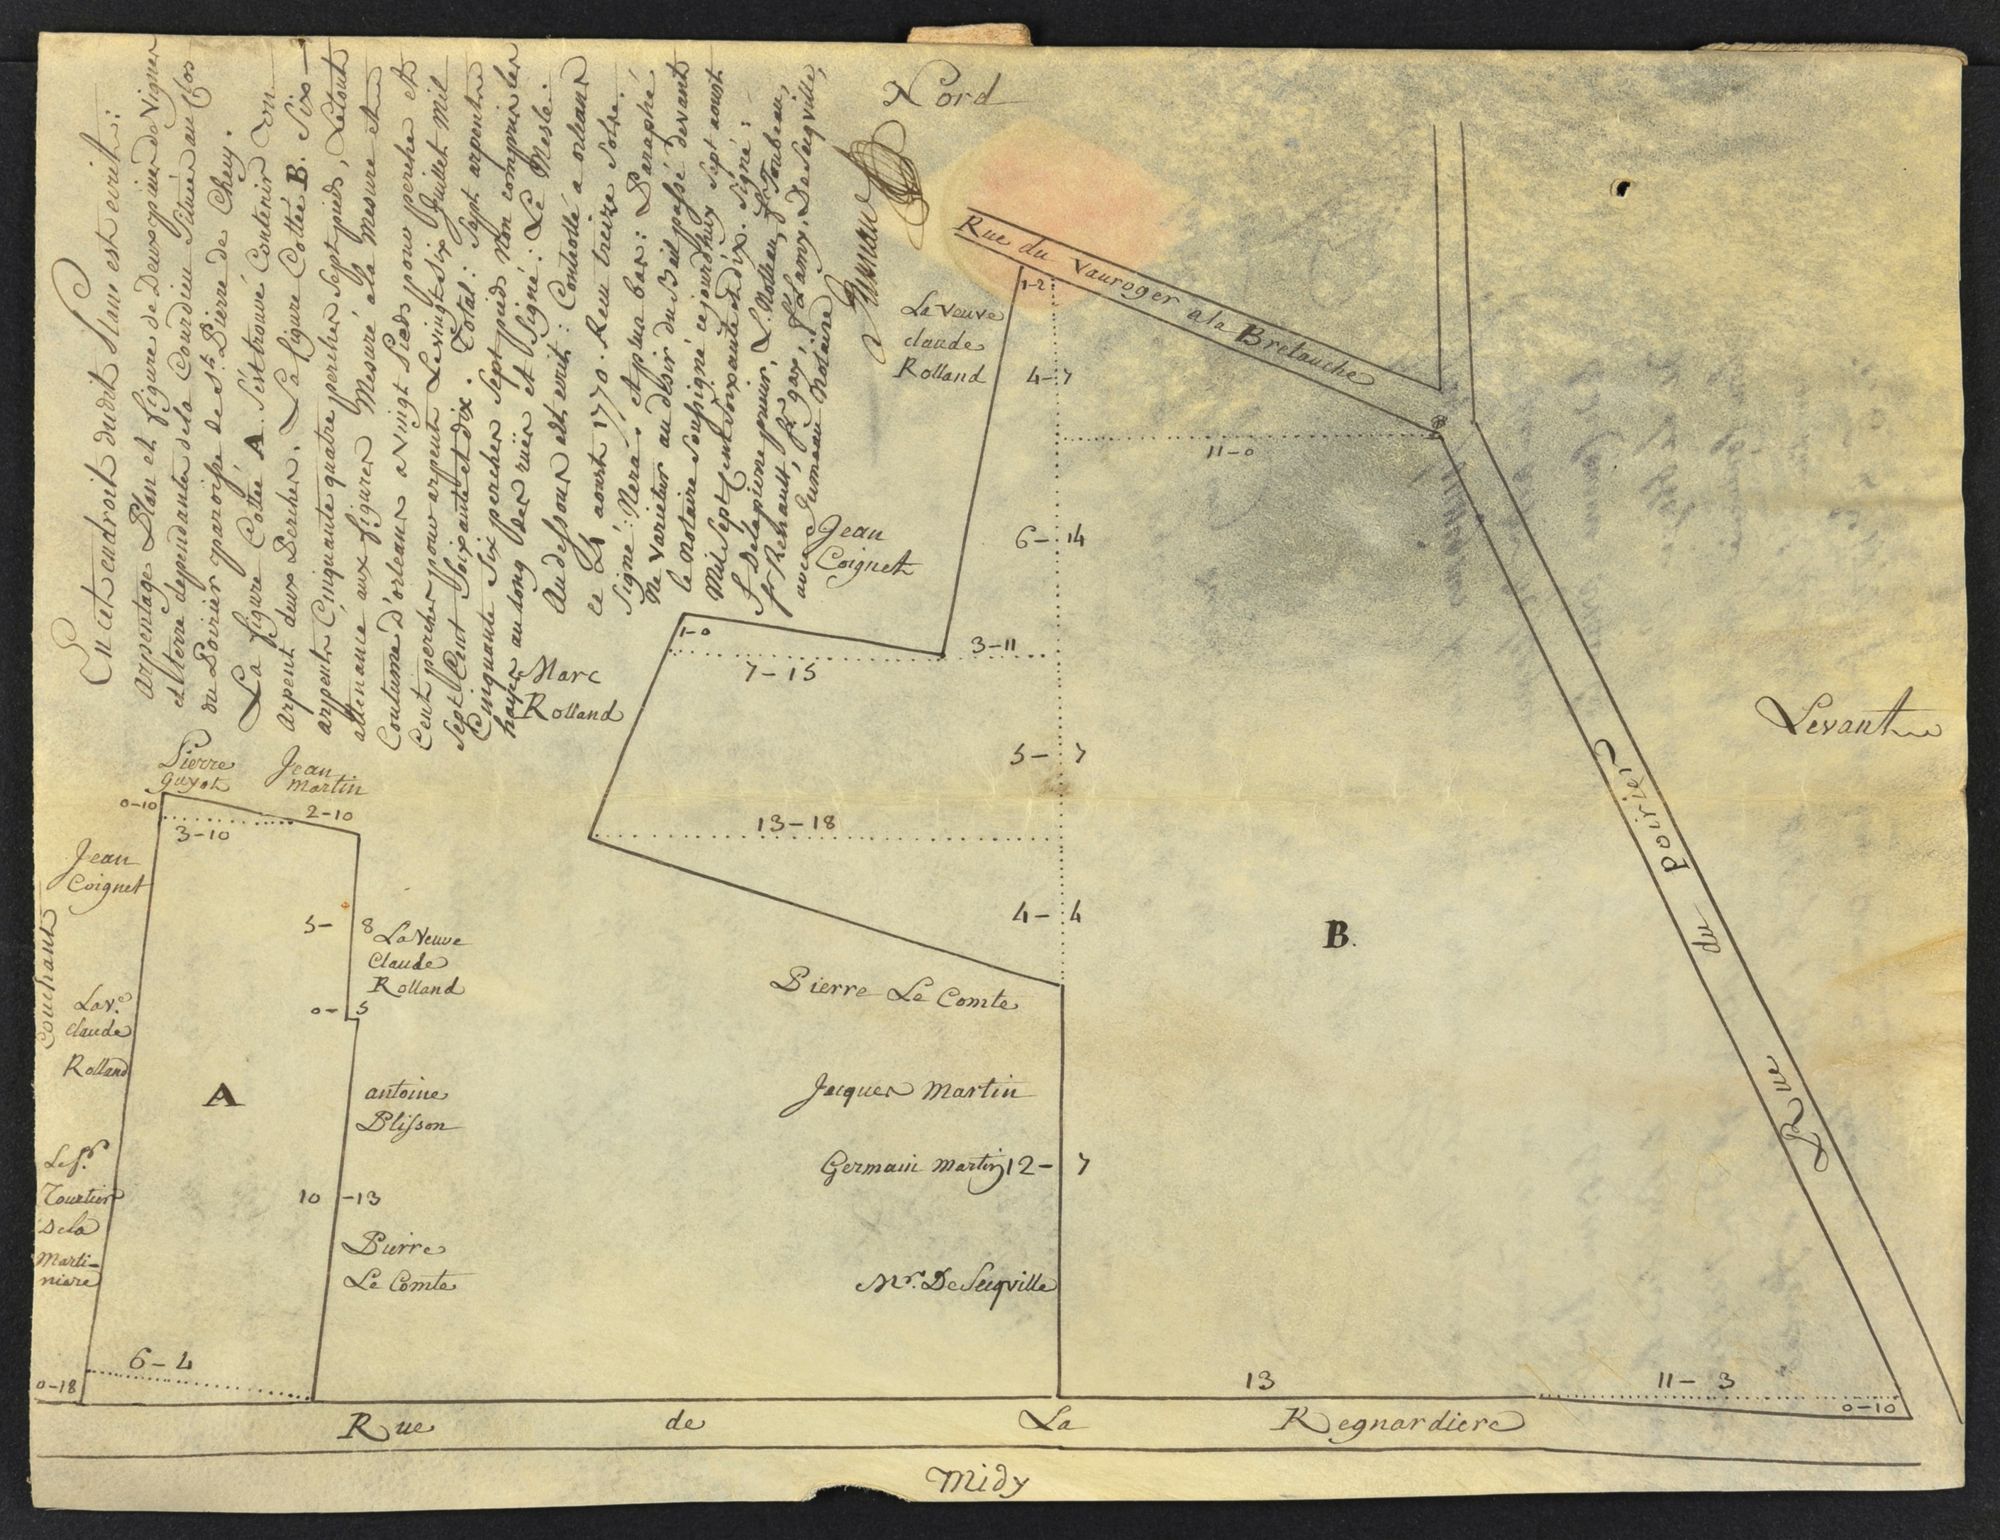 En cet endroit dudit Plan est ecrit:
arpentage Plan et figure de Deux pieces de Vignes
et terre dependantes de la Courdieu Située au Clos
du Poirier paroisse de St. Pierre de Checy.
La figure Cottée A. s'est trouvé Contenir un
arpent deux Perches. La figure Cottée B. Six
arpents Cinquante quatre perches sept pieds, Letout
attenance aux figures Mesuré a la Mesure et
Coutume D'orleans a Vingt Pieds pour perche et
Cent perches pour arpent Le vingt Six Juillet Mil
Sept Cent Soixante et dix. Total: Sept arpents
Cinquante Six perches Sept pieds Non compris les
hayes au long des rües et Signé: Le Mesle.
Au dessous est ecrit: Controllé a orleans
ce aoust 1770. Recu treize Sols.
Signé: et plus bas: Paraphé
Ne Varietur au desir du Bail passé devant
le Notaire Soussigné ce jourd'huy Sept aoust
Mil Sept Cent soixante et dix. Signé:
f. Delapierre prieur, L. f. Toubeau,
fr. Renault, fr. gay, f. Lamy, De Secqville,
avec Jumeau Notaire
Jumeau
Nord
Rue du Vauroger a la Bretauche
1-2
La Veuve
claude
Rolland
4-7
11-0
6-14
Jean
Coignet
1-0
3-11
7-15
Marc
Rolland
Levant
5-7
Pierre
guyot
Jean
martin
0-10
2-10
3-10
13-18
Jean
Coignet
4-4
B.
5-8
La Veuve
Claude
Rolland
Couchant
Pierre Le Comte
La Ve.
claude
Rolland
0-5
Rue du poirier
A
antoine
Blisson
Jacques Martin
Germain Martin
12-7
Le Sr.
Tourtier
De la
Marti-
niere
10-13
Pierre
Le Comte
Mr. De Secqville
6-4
0-18
13
11-3
0-10
Rue de La Regnardiere
Midy